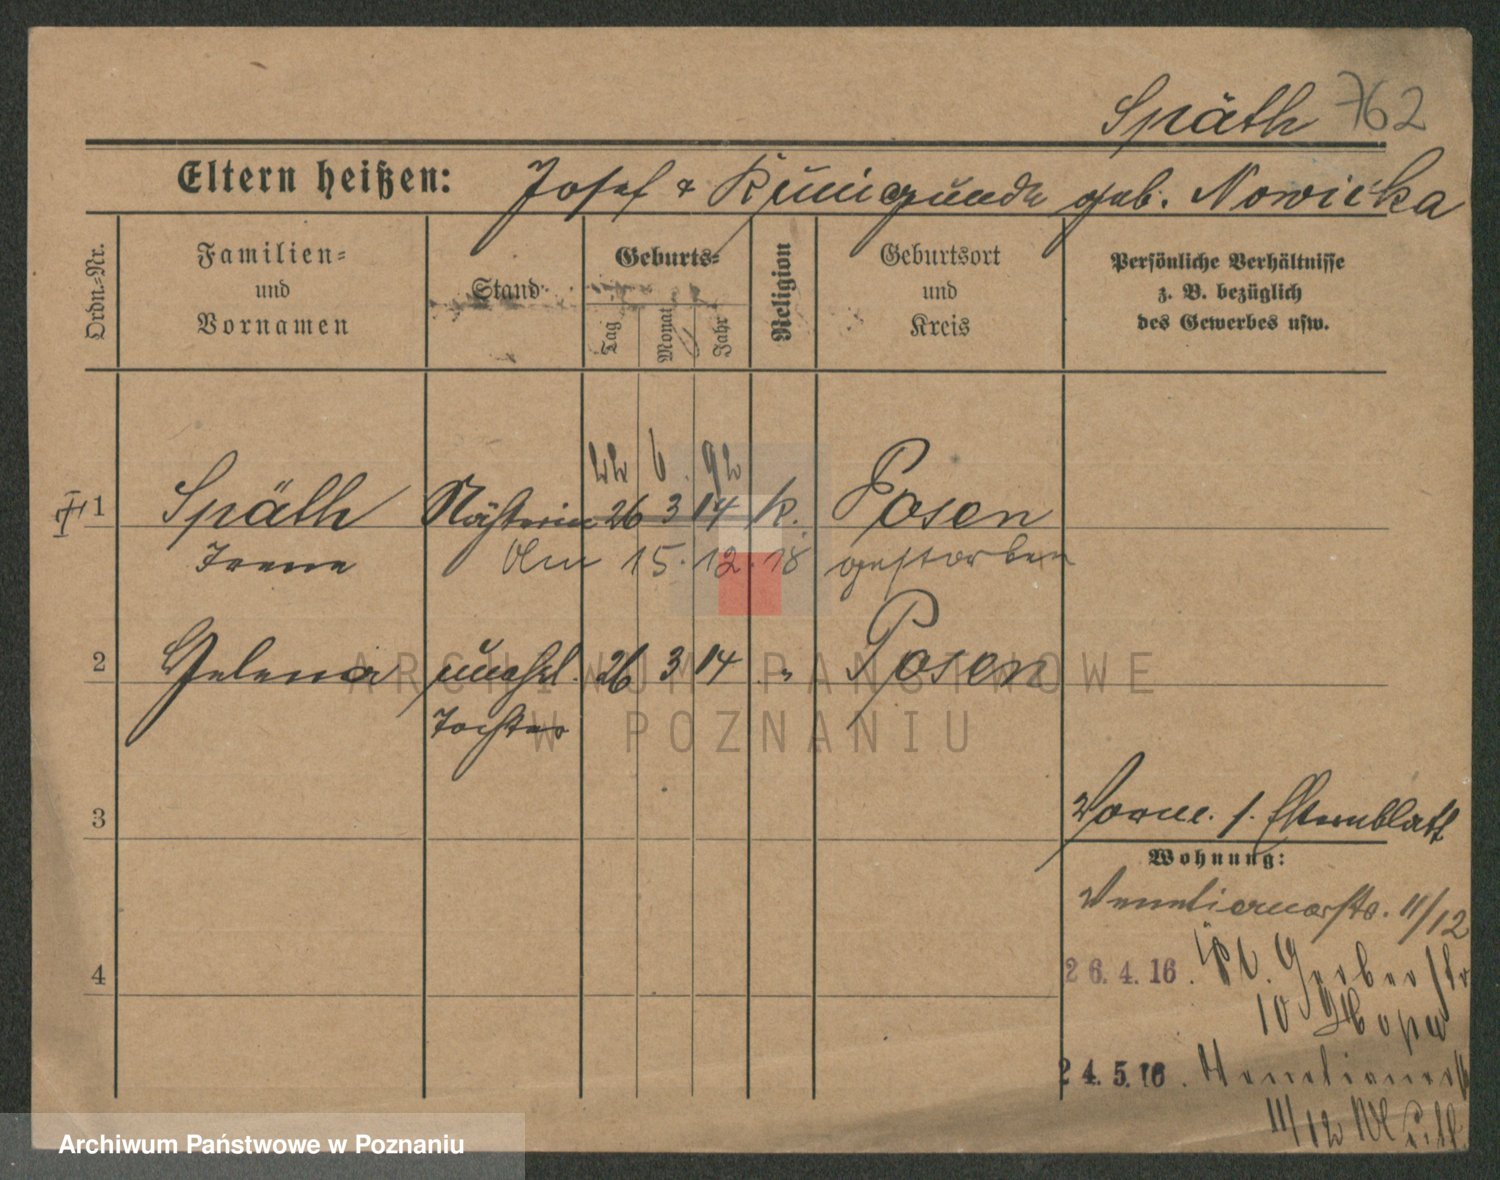 Späth 762
Eltern heißen: Josef & Kunigunde geb. Nowicka
Ordn.-Nr.
Familien-
und
Vornamen
Stand
Geburts-
Tag
Monat
Jahr
Religion
Geburtsort
und
Kreis
Persönliche Verhältnisse
z. B. bezüglich
des Gewerbes usw.
22 6. 92
1 Späth Näherin 26 3 14 k. Posen
Irene Am 15. 12. 18 gestorben
2 Helena unehel. 26 3 14 " Posen
Tochter
3
Vorm. s. Elternblatt
Wohnung:
Venetianerstr. 11/12
4
26.4.16. Gerberstr
10
24.5.16. Venetianerst
11/12
ARCHIWUM PAŃSTWOWE
W POZNANIU
Archiwum Państwowe w Poznaniu